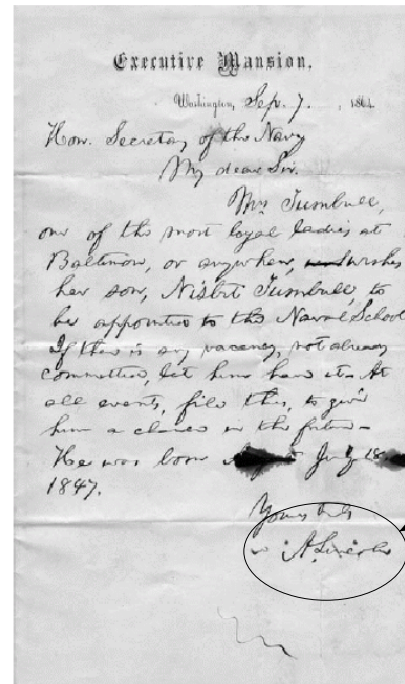 Executive Mansion,
Washington, Sep. 7, 1864
Hon. Secretary of the Navy
My dear Sir.
Mrs Turnbull,
one of the most loyal ladies at
Baltimore, or anywhere, wishes
her son, Nisbit Turnbull, to
be appointed to the Naval School
If there is any vacancy, not already
committed, let him have it. At
all events, file this, to give
him a chance in the future.
He was born July 18
1847.
Yours truly
A. Lincoln